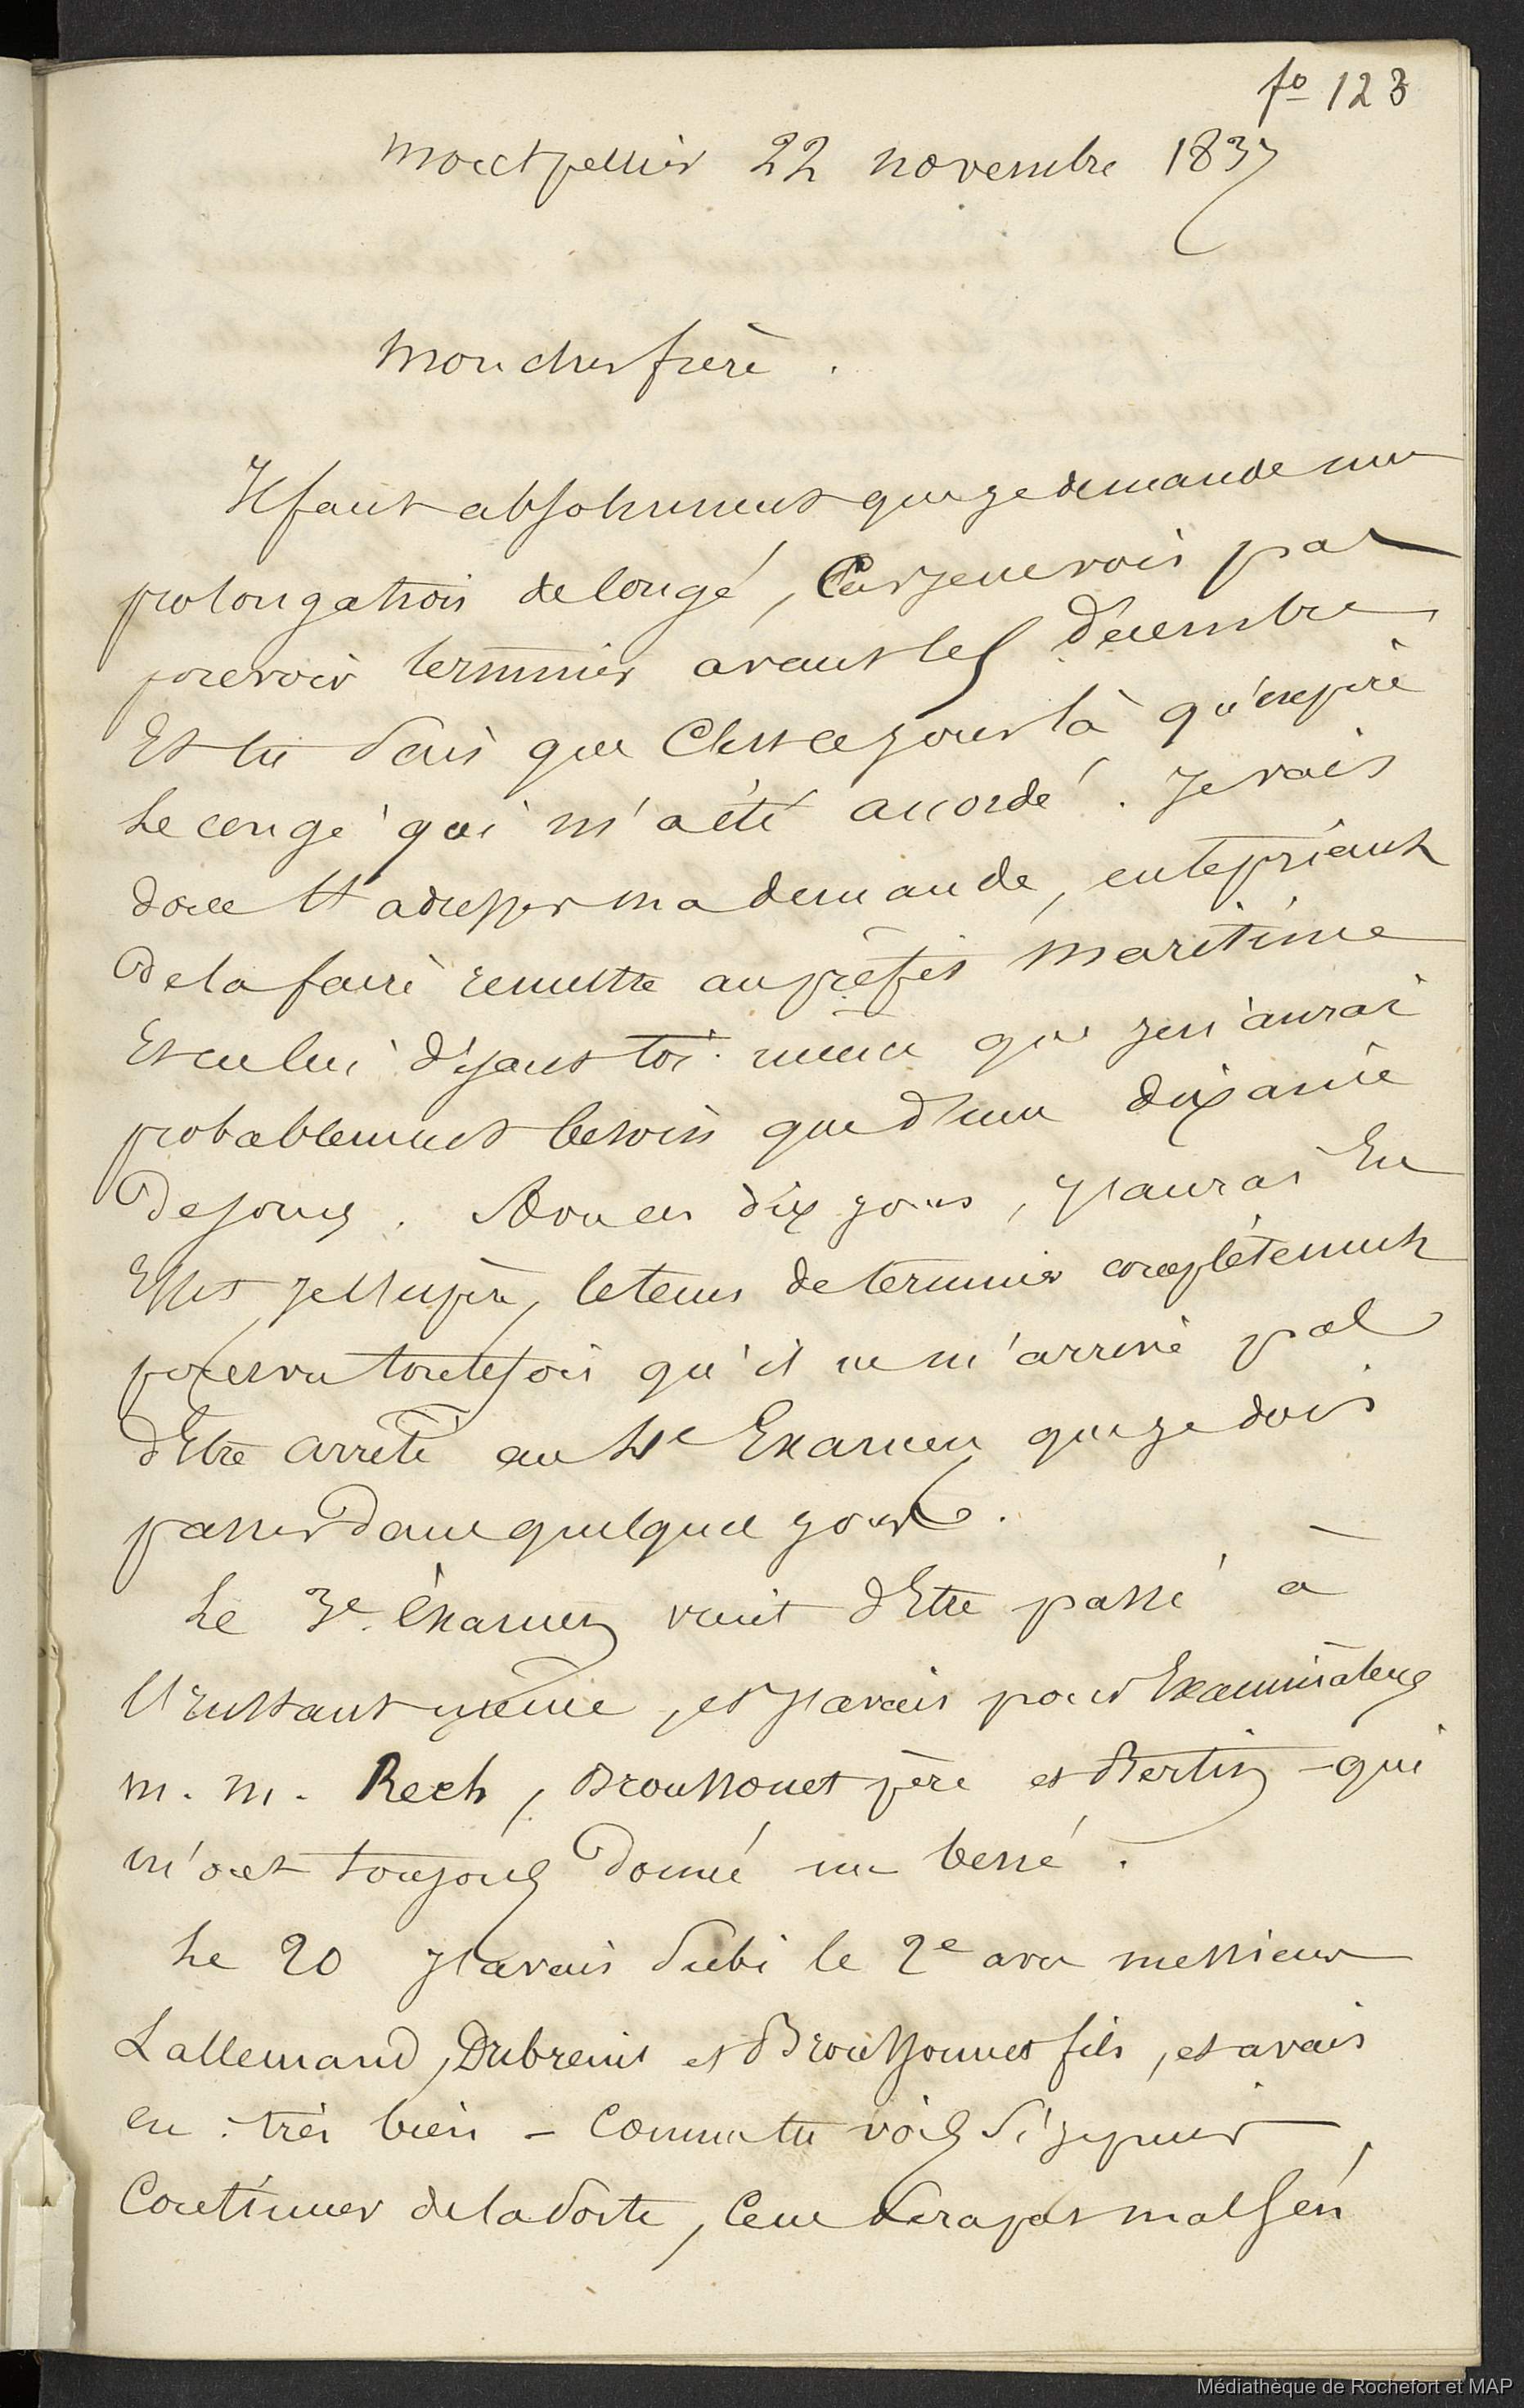 fo 123
Montpellier 22 novembre 1837
Mon cher frère.
Il faut absolument que je demande une
prolongation de congé, Car je ne vois pas
pouvoir terminer avant les décembre
Et tu sais que C'est ce jour là qu'expire
Le congé qui m'a été accordé. Je vais
donc t'adresser ma demande, en te priant
De la faire remettre au préfet maritime
Et en lui disant toi-même que je n'aurai
probablement besoin que d'une dixaine
De jours. Dans ces dix jours, j'aurai En
Effet, je l'espère, le tems de terminer complétement
pourvu toutefois qu'il ne m'arrive pas
d'Etre arrêté au 4e Examen que je dois
passer Dans quelques jours.
Le 3e Examen vient d'Etre passé à
l'instant même, et j'avais pour Examinateurs
m. m. Rech, Broussonet père et Bertin - qui
m'ont toujours Donné un bene.
Le 20 j'avais Subi le 2e avec messieurs
Lallemand, Dubreuil et Broussonnet fils, et avais
eu très bien - Comme tu vois Si je puis
Continuer de la Sorte, Ce ne Sera pas mal S'en